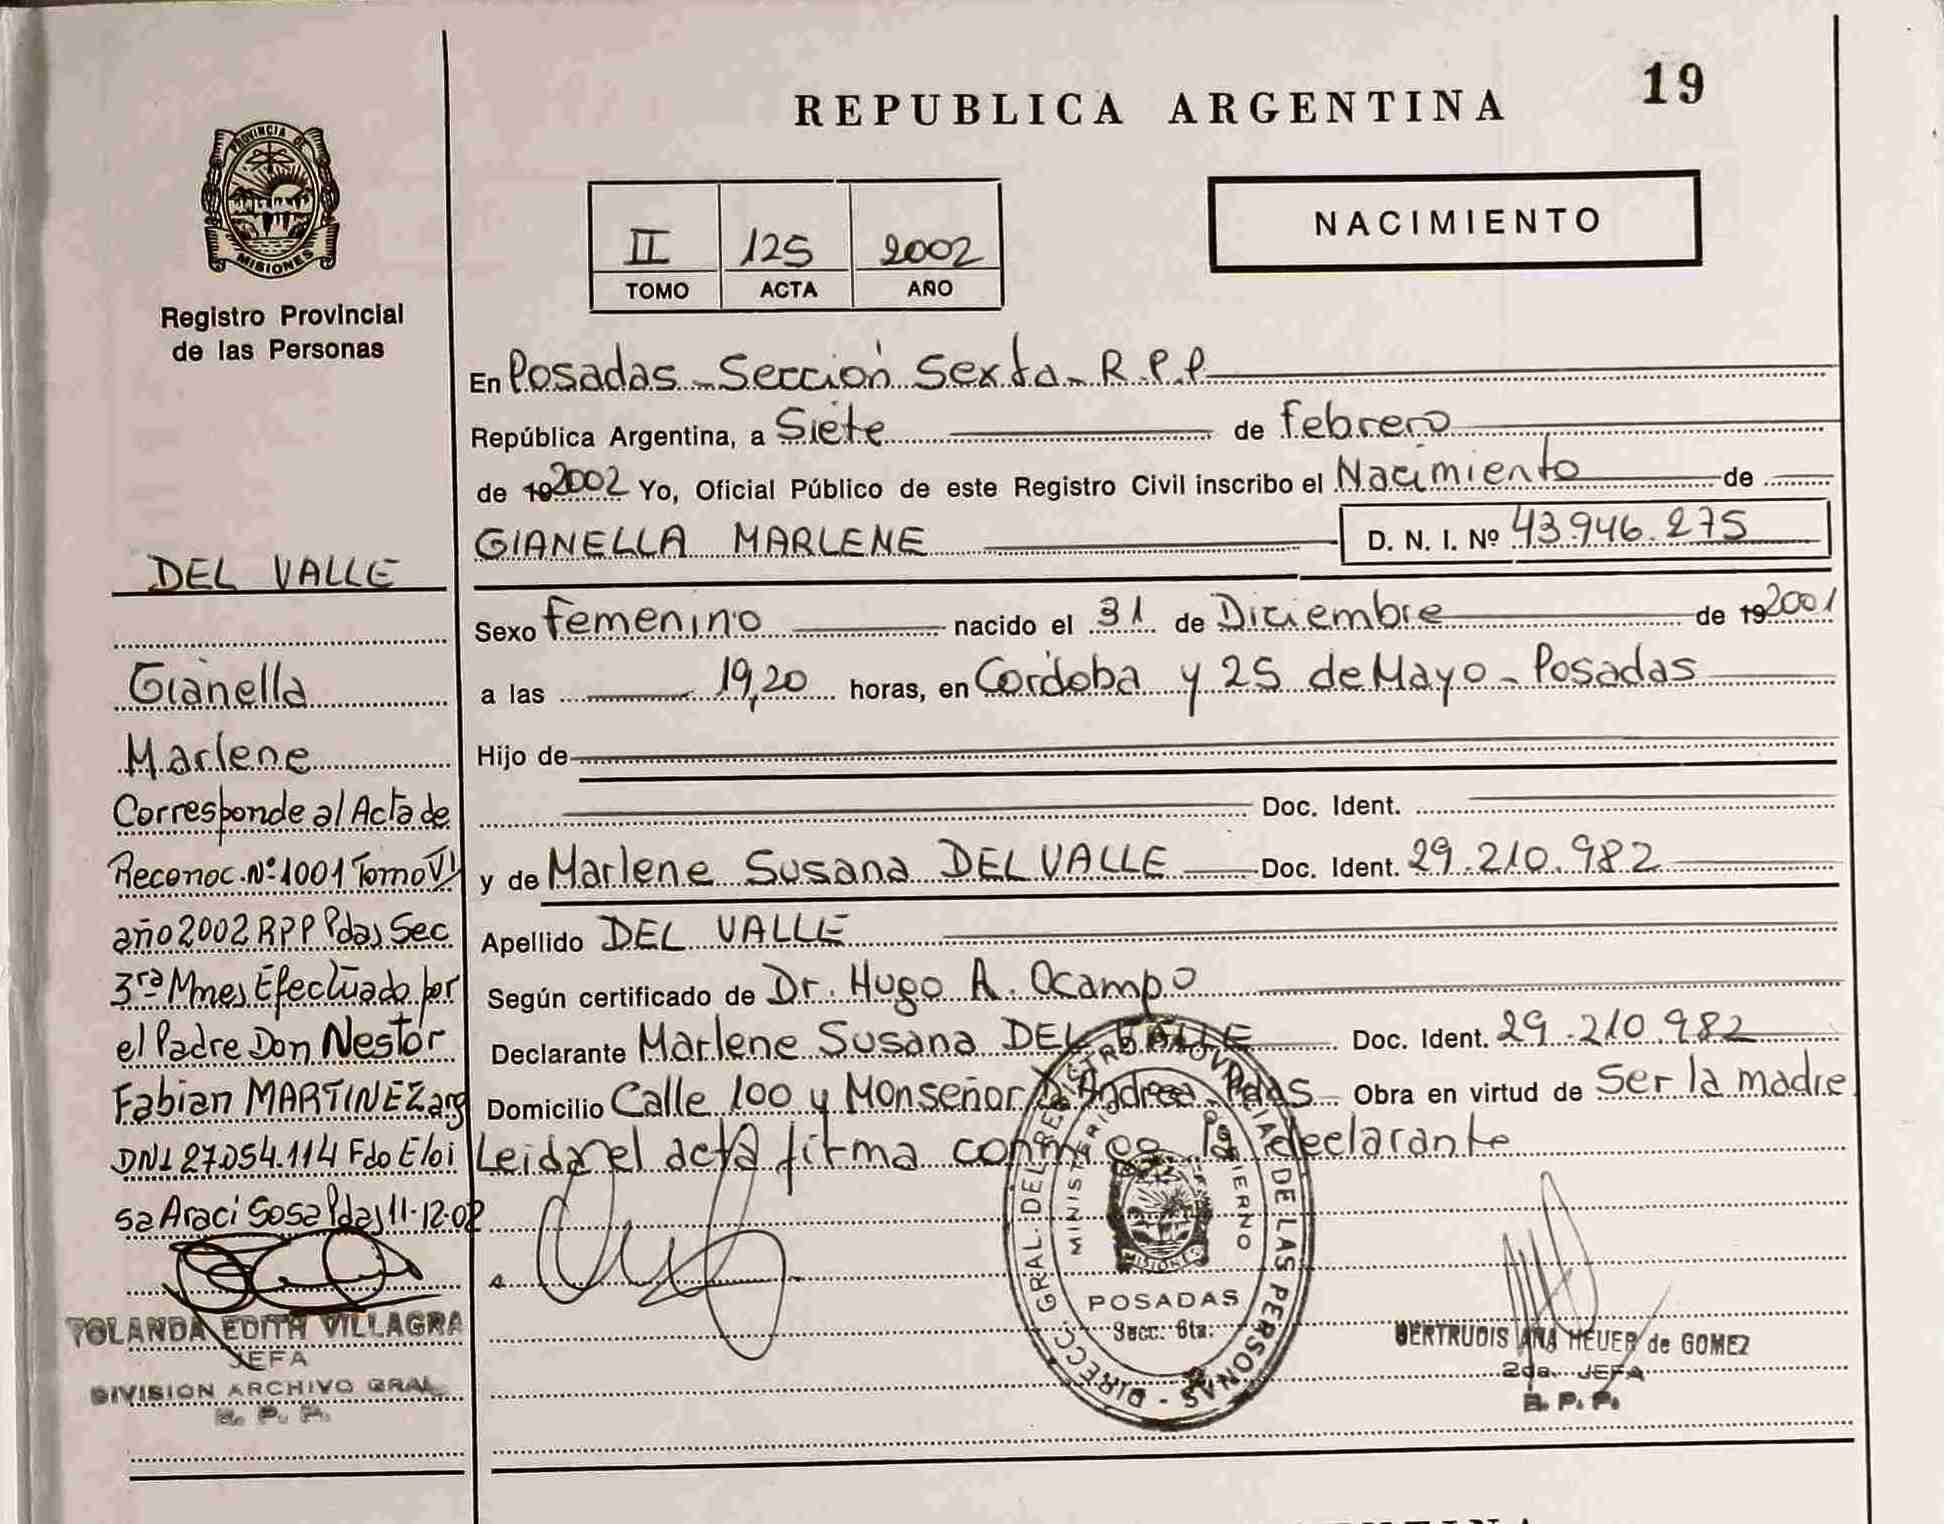 REPUBLICA ARGENTINA
19
PROVINCIA DE
MISIONES
Registro Provincial
de las Personas
II 125 2002
TOMO ACTA AÑO
NACIMIENTO
En Posadas - Sección Sexta - R.P.P.
República Argentina, a Siete de febrero
de 192002 Yo, Oficial Público de este Registro Civil inscribo el Nacimiento de
GIANELLA MARLENE D. N. I. Nº 43.946.275
Sexo femenino nacido el 31 de Diciembre de 192001
a las 19,20 horas, en Córdoba y 25 de Mayo - Posadas
Hijo de
Doc. Ident.
y de Marlene Susana DEL VALLE Doc. Ident. 29.210.982
Apellido DEL VALLE
Según certificado de Dr. Hugo A. Ocampo
Declarante Marlene Susana DEL VALLE Doc. Ident. 29.210.982
Domicilio Calle 100 y Monseñor D'Andrea - Pdas Obra en virtud de Ser la madre
Leida el acta firma conmigo la declarante
DEL VALLE
Gianella
Marlene
Corresponde al Acta de
Reconoc. Nº 1001 Tomo VI
año 2002 RPP Pdas Sec
3ra Mnes Efectuado por
el Padre Don Nestor
Fabian MARTINEZ arg
DNI 27.054.114 Fdo Eloi
sa Araci Sosa Pdas 11-12-02
YOLANDA EDITH VILLAGRA
JEFA
DIVISION ARCHIVO GRAL.
R. P. P.
DIRECC. GRAL. DEL REGISTRO PROVINCIAL DE LAS PERSONAS
MINISTERIO DE GOBIERNO
MISIONES
POSADAS
Secc. 6ta.
GERTRUDIS ANA HEUER de GOMEZ
2da. JEFA
R. P. P.